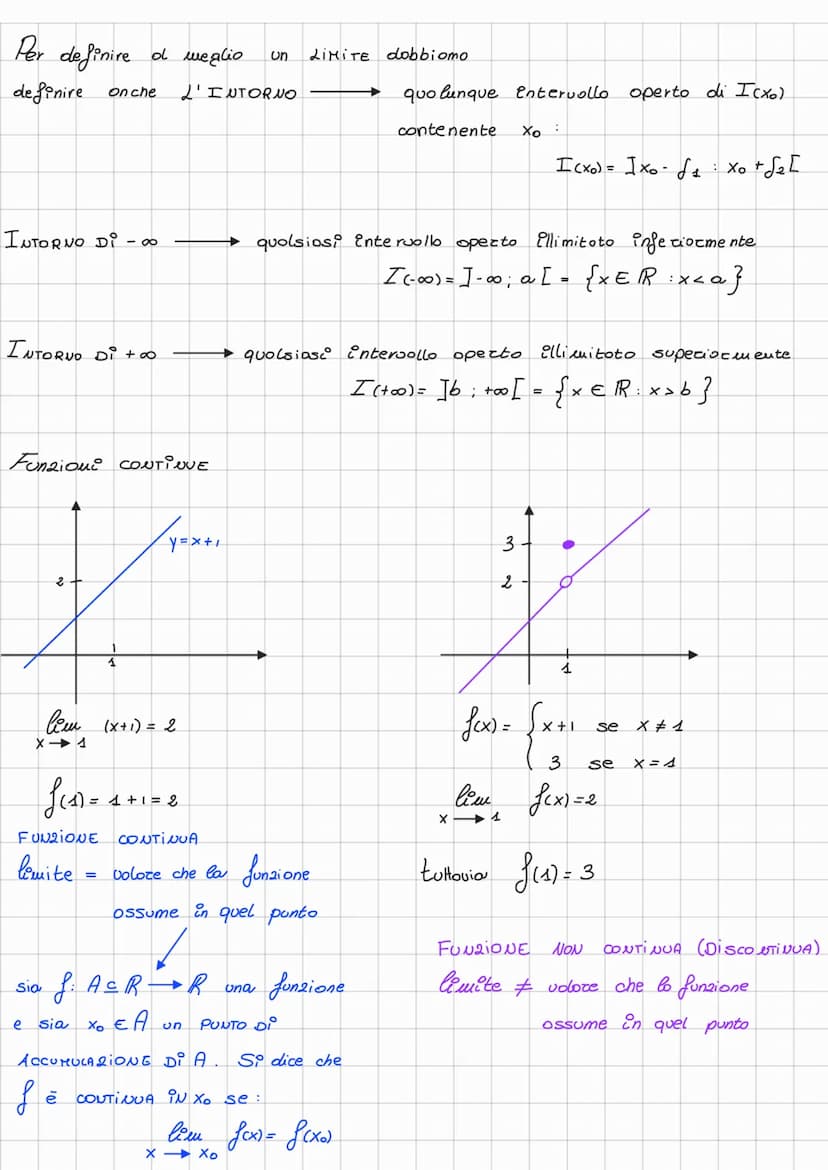 Per definire al meglio un LIMITE dobbiamo
definire anche L'INTORNO → qualunque intervallo aperto di I(x₀)
contenente x₀ :
I(x₀) = ]x₀ - δ₁ : x₀ + δ₂[
INTORNO Di -∞ → qualsiasi intervallo aperto illimitato inferiormente
I(-∞) = ]-∞ ; a[ = {x ∈ ℝ : x < a}
INTORNO Di +∞ → qualsiasi intervallo aperto illimitato superiormente
I(+∞) = ]b ; +∞[ = {x ∈ ℝ : x > b}
Funzioni CONTINUE
y = x+1
2
1
3
2
1
lim (x+1) = 2
x → 1
f(1) = 1+1 = 2
FUNZIONE CONTINUA
limite = valore che la funzione
assume in quel punto
sia f: A ⊆ ℝ → ℝ una funzione
e sia x₀ ∈ A un PUNTO Di
ACCUMULAZIONE Di A. Si dice che
f è CONTINUA IN x₀ se :
lim f(x) = f(x₀)
x → x₀
f(x) = { x+1 se x ≠ 1
3 se x = 1
lim f(x) = 2
x → 1
tuttavia f(1) = 3
FUNZIONE NON CONTINUA (DISCONTINUA)
limite ≠ valore che la funzione
assume in quel punto